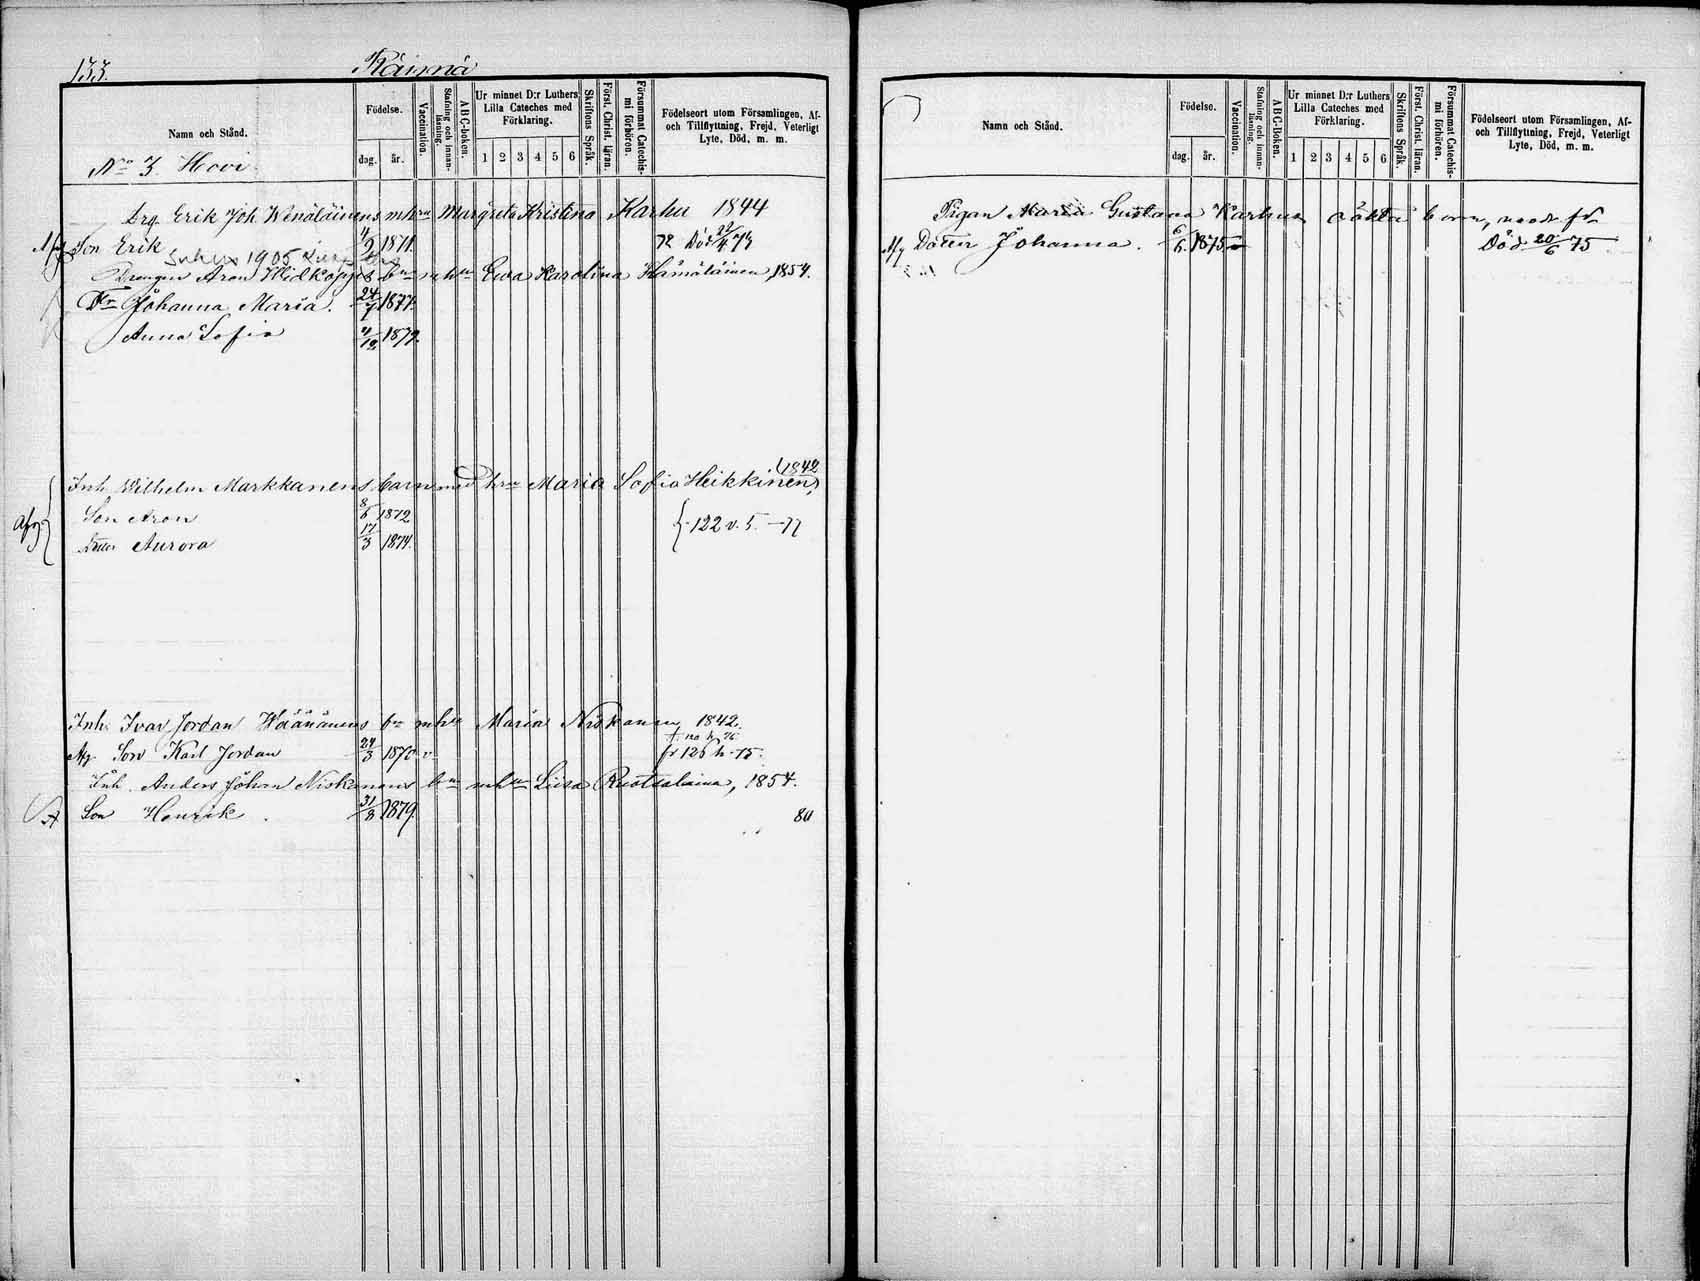 133.
Räimä
Namn och Stånd.
Födelse.
dag. år.
Vaccination.
Stafning och innanläsning.
ABC-boken.
Ur minnet D:r Luthers Lilla Cateches med Förklaring.
1 2 3 4 5 6
Skriftens Språk.
Först. Christ. läran.
Försummat Catechismi förhören.
Födelseort utom Församlingen, Af- och Tillflyttning, Frejd, Veterligt Lyte, Död, m. m.
No 3. Hovi
Drg. Erik Joh. Wenäläinens m hru Margreta Kristina Karhu 1844
Son Erik 4/2 1871. 72 Död 22/4 73
1905
Drengen Aron Hidkoppis bn m hu Ewa Karolina Hämäläinen, 1854.
Dr Johanna Maria. 24/7 1877.
Anna Sofia 4/12 1879.
Inh. Wilhelm Markkanens barn med hru Maria Sofia Heikkinen, 1842
Afg.
Son Aron 8/6 1872
Dotter Aurora 17/3 1874.
122 v. 5. -77
Inh. Ivar Jordan Väänänens bn m hu Maria Niskanen, 1842.
Afg. Son Karl Jordan 24/3 1870 v fr 126 h -75.
Inh. Anders Johan Niskanens bn m hu Liisa Ruotsalaina, 1854.
Son Henrik 31/8 1879. 80
Namn och Stånd.
Födelse.
dag. år.
Vaccination.
Stafning och innanläsning.
ABC-Boken.
Ur minnet D:r Luthers Lilla Cateches med Förklaring.
1 2 3 4 5 6
Skriftens Språk.
Först. Christ. läran.
Försummat Catechismi förhören.
Födelseort utom Församlingen, Af- och Tillflyttning, Frejd, Veterligt Lyte, Död, m. m.
Pigan Maria Gustava Karhus oäkta barn,
Afg Dotter Johanna. 6/6. 1875. Död 20/6 75